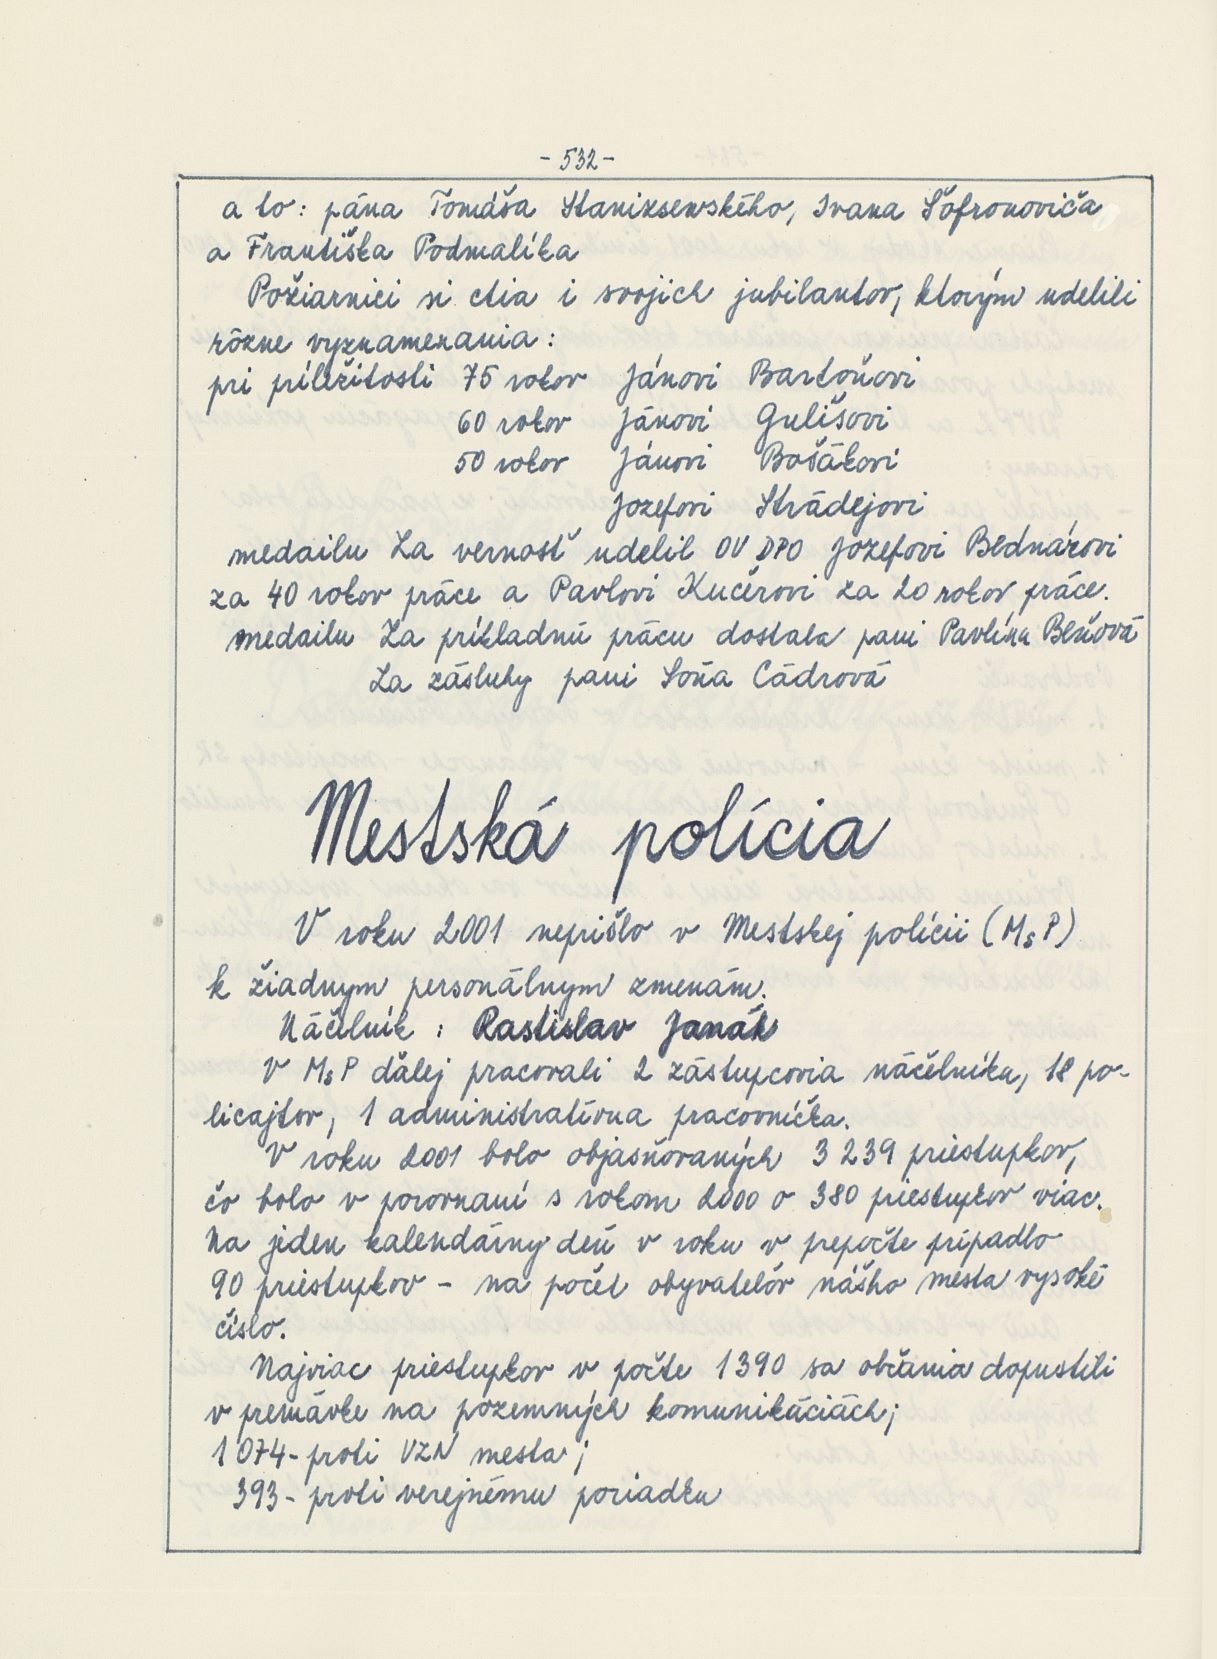 - 532 -
a to: pána Tomáša Staniszewského, Ivana Šofronoviča
a Františka Podmalíka
Požiarnici si ctia i svojich jubilantov, ktorým udelili
rôzne vyznamenania:
pri príležitosti 75 rokov Jánovi Bartoňovi
60 rokov Jánovi Gulišovi
50 rokov Jánovi Bošákovi
Jozefovi Strádejovi
medailu Za vernosť udelil OV DPO Jozefovi Bednárovi
za 40 rokov práce a Pavlovi Kučerovi za 20 rokov práce.
medailu Za príkladnú prácu dostala pani Pavlína Beňová
Za zásluhy pani Soňa Cádrová
Mestská polícia
V roku 2001 neprišlo v Mestskej polícii (MsP)
k žiadnym personálnym zmenám.
Náčelník: Rastislav Janák
V MsP ďalej pracovali 2 zástupcovia náčelníka, 18 po-
licajtov, 1 administratívna pracovníčka.
V roku 2001 bolo objasňovaných 3 239 priestupkov,
čo bolo v porovnaní s rokom 2000 o 380 priestupkov viac.
Na jeden kalendárny deň v roku v prepočte pripadlo
90 priestupkov - na počet obyvateľov nášho mesta vysoké
číslo.
Najviac priestupkov v počte 1 390 sa občania dopustili
v premávke na pozemných komunikáciách;
1 074 - proti VZN mesta;
393 - proti verejnému poriadku